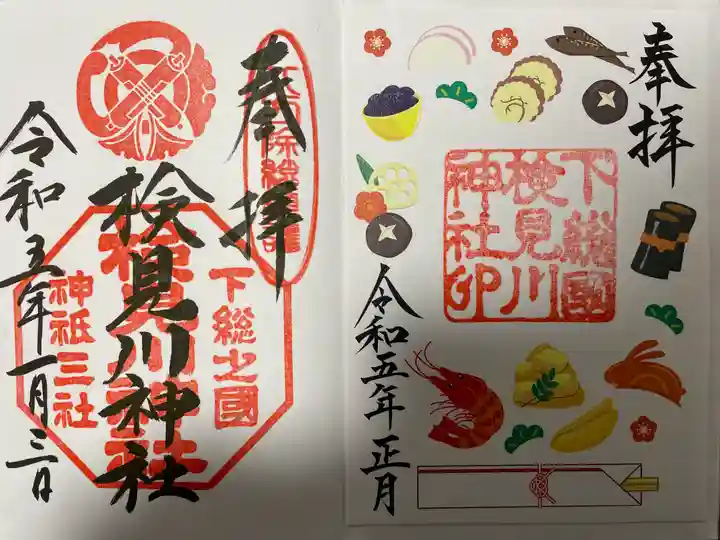 奉拝
下総国
検見川
神社印
令和五年正月
奉拝
下総之國
検見川神社
神祇三社
令和五年一月三日